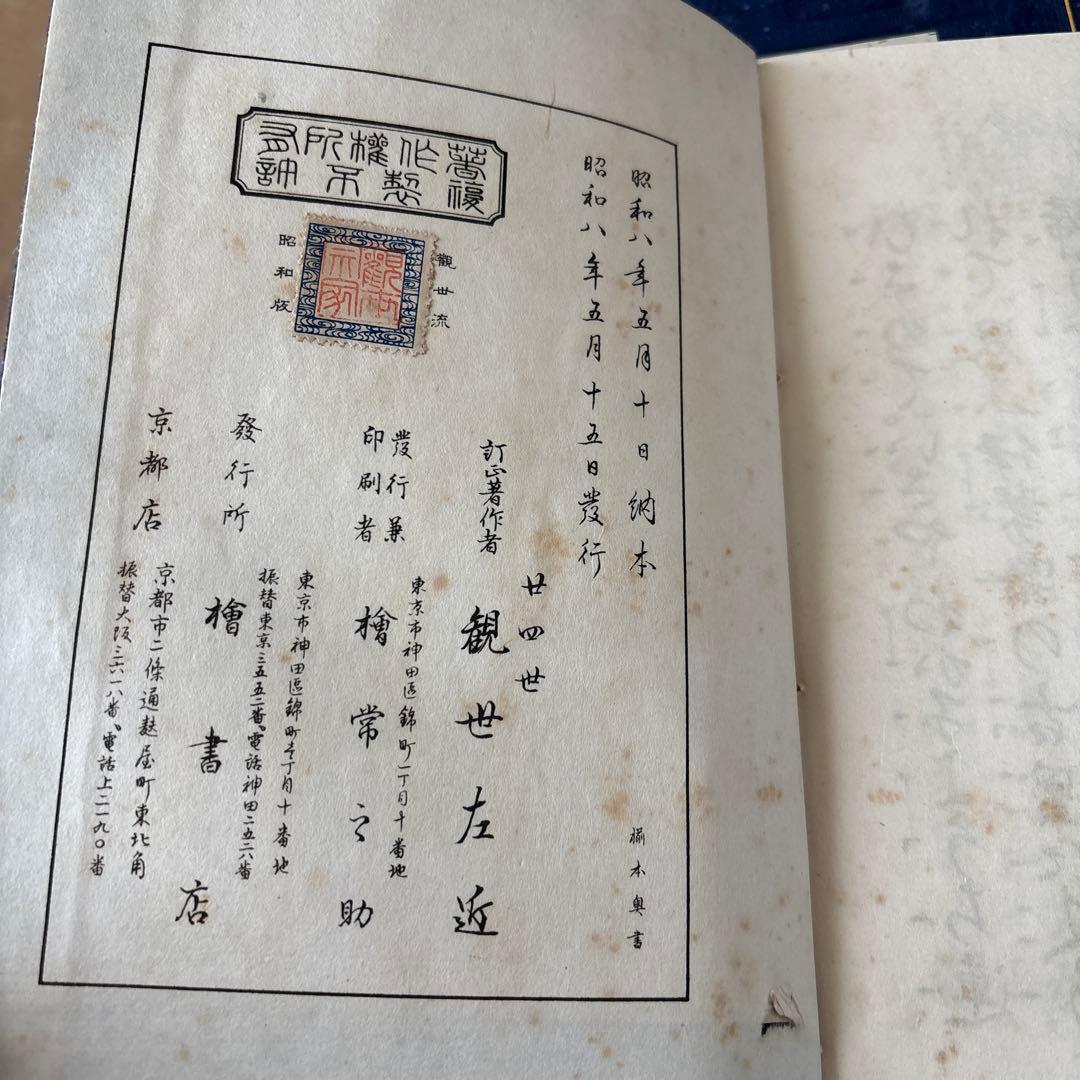 昭和八年五月十日納本
昭和八年五月十五日發行
著作權所有
複製不許
觀世流
昭和版
訂正著作者
廿四世
観世左近
發行兼
印刷者
東京市神田區錦町一丁目十番地
檜常之助
發行所
東京市神田區錦町壱丁目十番地
振替東京三五五二番、電話神田二五二六番
檜書店
京都店
京都市二條通麩屋町東北角
振替大阪三六一八番、電話上二一九〇番
本奥書